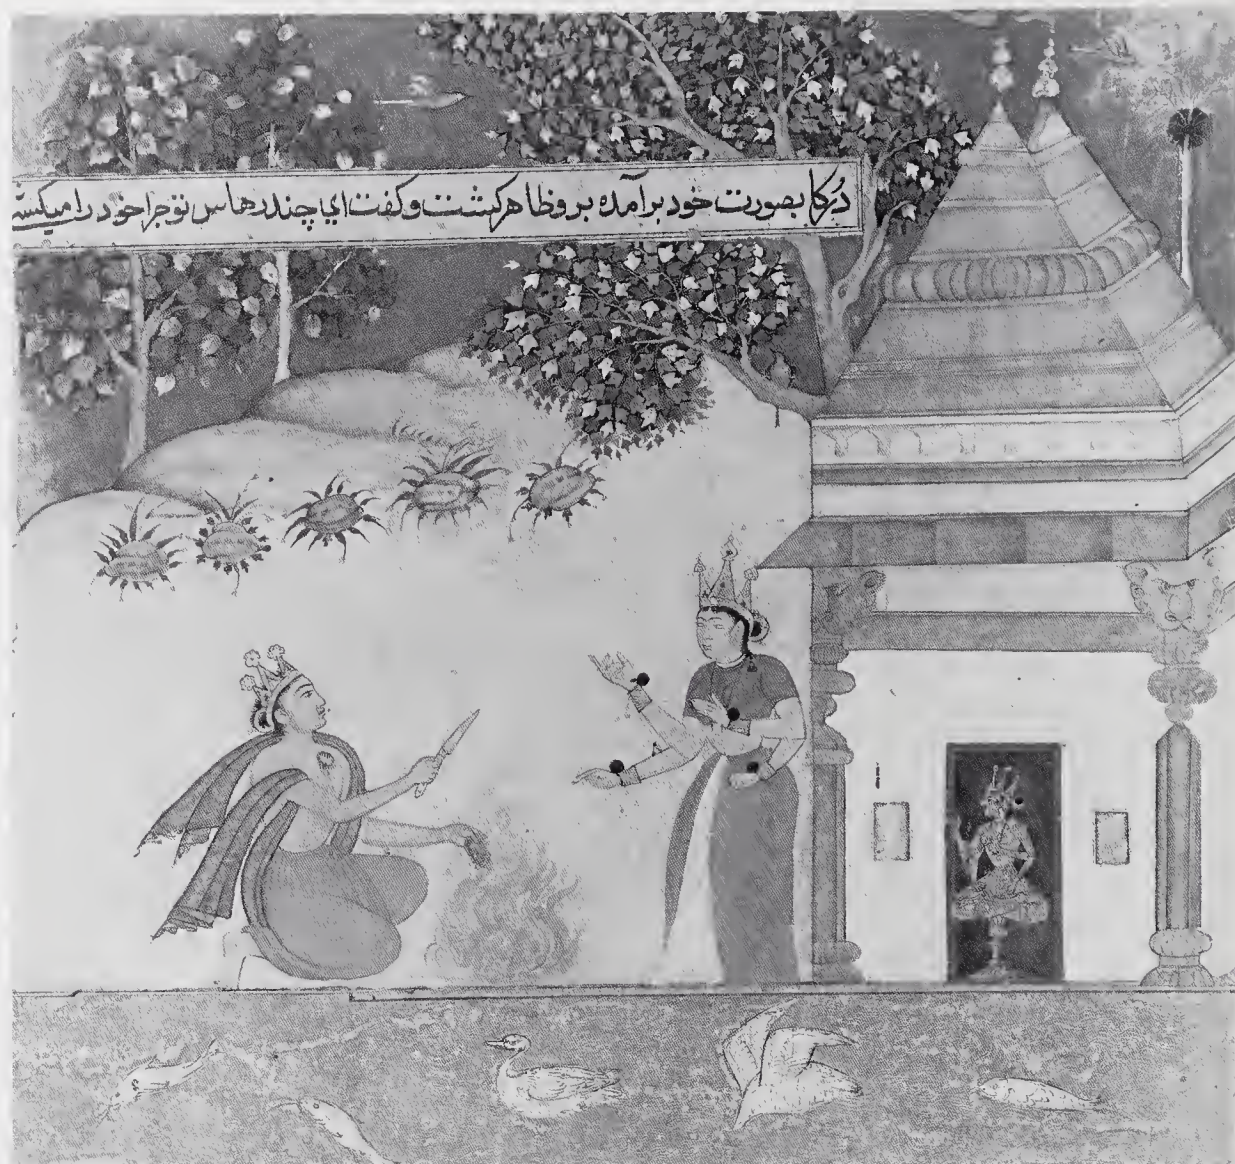 دُرکا بصورت خود برآمده بروظاهر کشت و کفت اي چندرهاس تو چرا خود را میکشی